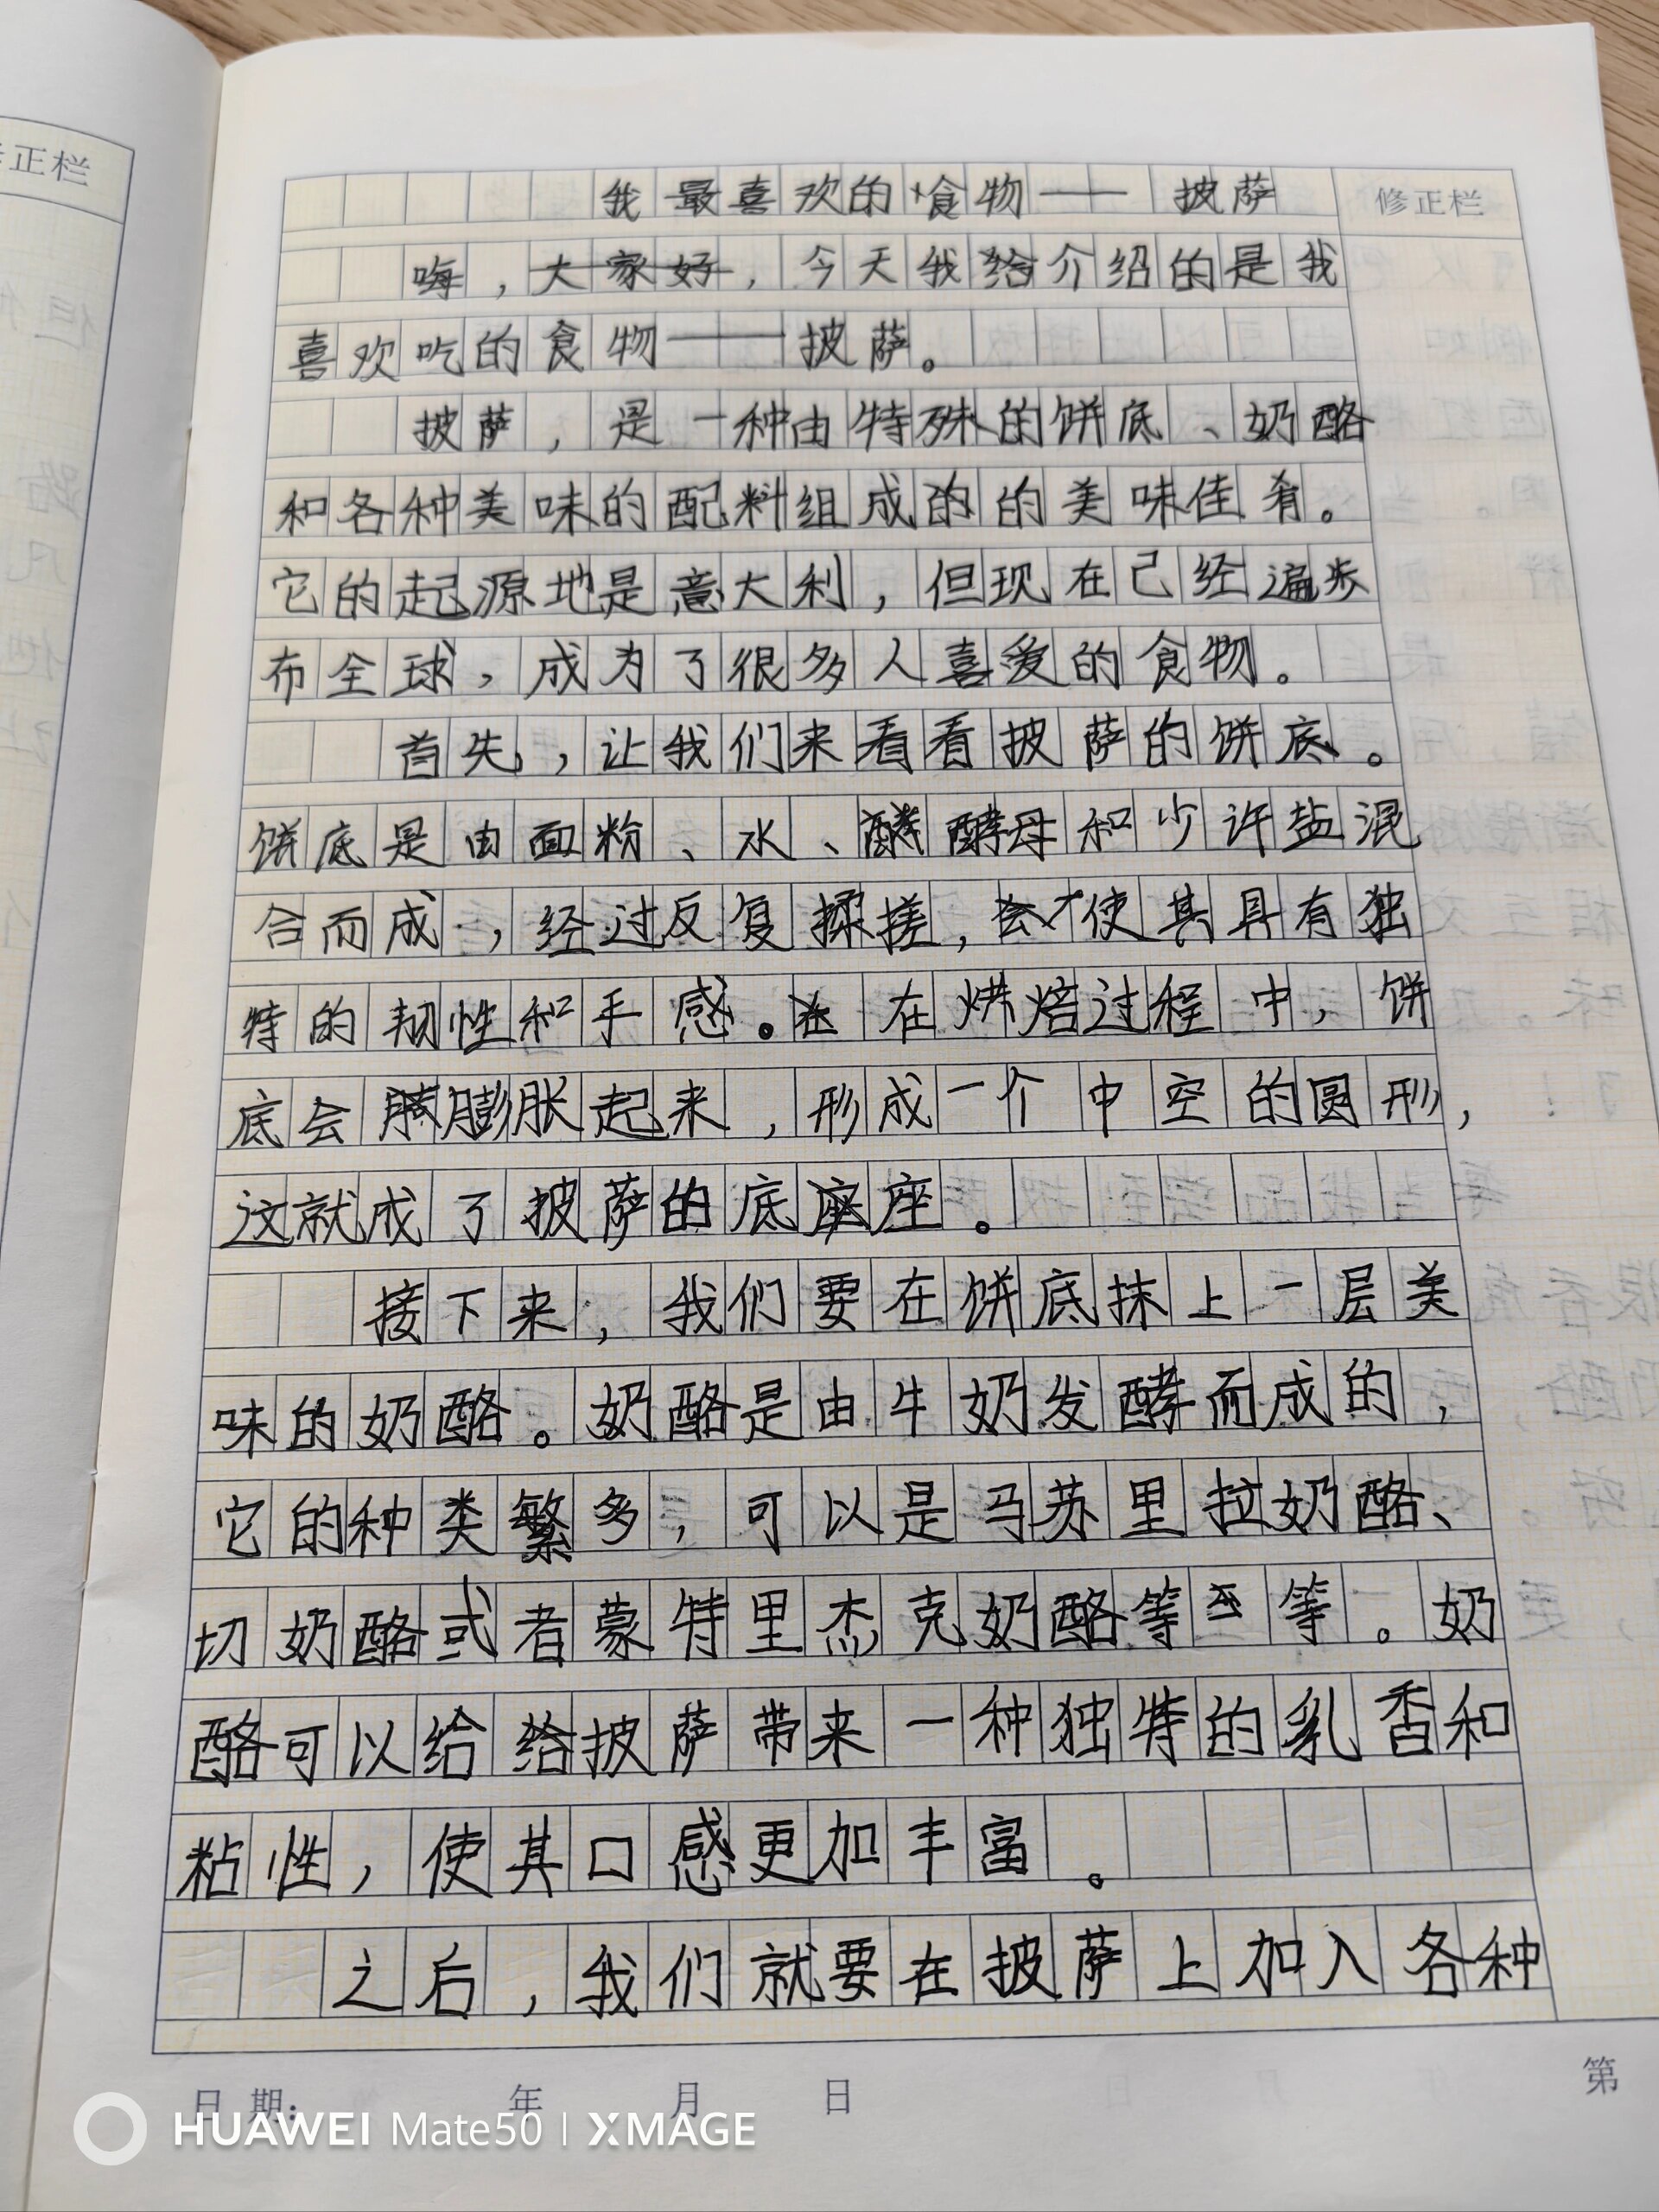 修正栏
我最喜欢的食物——披萨
嗨，大家好，今天我给介绍的是我
喜欢吃的食物——披萨。
披萨，是一种由特殊的饼底、奶酪
和各种美味的配料组成的的美味佳肴。
它的起源地是意大利，但现在已经遍步
布全球，成为了很多人喜爱的食物。
首先，，让我们来看看披萨的饼底。
饼底是由面粉、水、酵母和少许盐混
合而成，经过反复揉搓，使其具有独
特的韧性和手感。在烘焙过程中，饼
底会膨胀起来，形成一个中空的圆形，
这就成了披萨的底座。
接下来，我们要在饼底抹上一层美
味的奶酪。奶酪是由牛奶发酵而成的，
它的种类繁多，可以是马苏里拉奶酪、
切奶酪或者蒙特里杰克奶酪等等。奶
酪可以给给披萨带来一种独特的乳香和
粘性，使其口感更加丰富。
之后，我们就要在披萨上加入各种
日期： 年 月 日
第
正栏
HUAWEI Mate50 | XMAGE